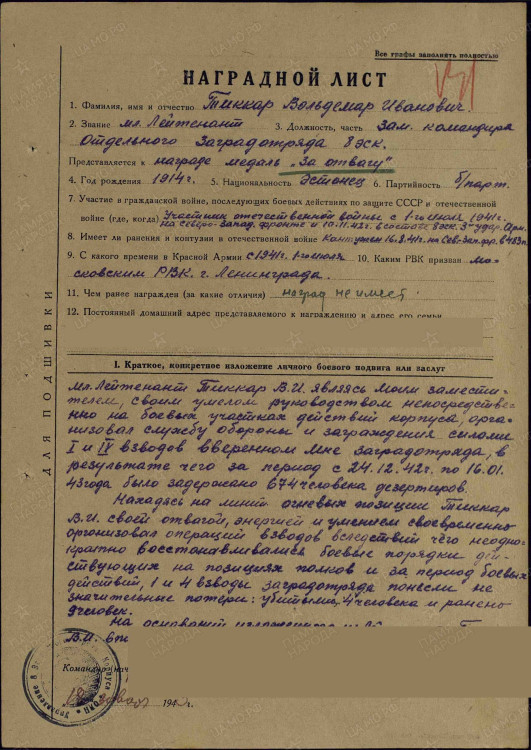 Все графы заполнить полностью
НАГРАДНОЙ ЛИСТ
1. Фамилия, имя и отчество Тиккар Вольдемар Иванович.
2. Звание мл. Лейтенант 3. Должность, часть Зам. командира
Отдельного Заградотряда 8 эск.
Представляется к награде медаль „За отвагу“
4. Год рождения 1914 г. 5. Национальность Эстонец 6. Партийность б/парт.
7. Участие в гражданской войне, последующих боевых действиях по защите СССР и отечественной
войне (где, когда) Участник отечественной войны с 1-го июля 1941 г.
на Северо-Запад. фронте и 10.11.42 г. в составе 8 эск. 3й удар. Арм.
8. Имеет ли ранения и контузии в отечественной войне Контужен 16.8.41 г. на Сев-Зап. фр. в 483 п.
9. С какого времени в Красной Армии с 1941 г. 1-го июля 10. Каким РВК призван мо-
сковским РВК. г. Ленинграда.
11. Чем ранее награжден (за какие отличия) наград не имеет.
12. Постоянный домашний адрес представляемого к награждению и адрес его семьи
ДЛЯ ПОДШИВКИ
I. Краткое, конкретное изложение личного боевого подвига или заслуг
мл. Лейтенант Тиккар В.И. являясь моим замести-
телем, своим умелом руководством непосредстве-
нно на боевых участках действий корпуса, орга-
низовал службу обороны и заграждения силами
I и IV взводов вверенном мне заградотряда, в
результате чего за период с 24.12.42 г. по 16.01.
43 года было задержано 674 человека дезертиров.
Находясь на линии огневых позиции Тиккар
В.И. своей отвагой, энергией и умением своевременно
организовал операций взводов вследствий чего неодно-
кратно восстанавливались боевые порядки дей-
ствующих на позициях полков и за период боевых
действий, 1 и 4 взводы заградотряда понесли не
значительные потери: убитыми 4 человека и ранено
9 человек.
На основании изложенного
В.И.
Командир
194 г.